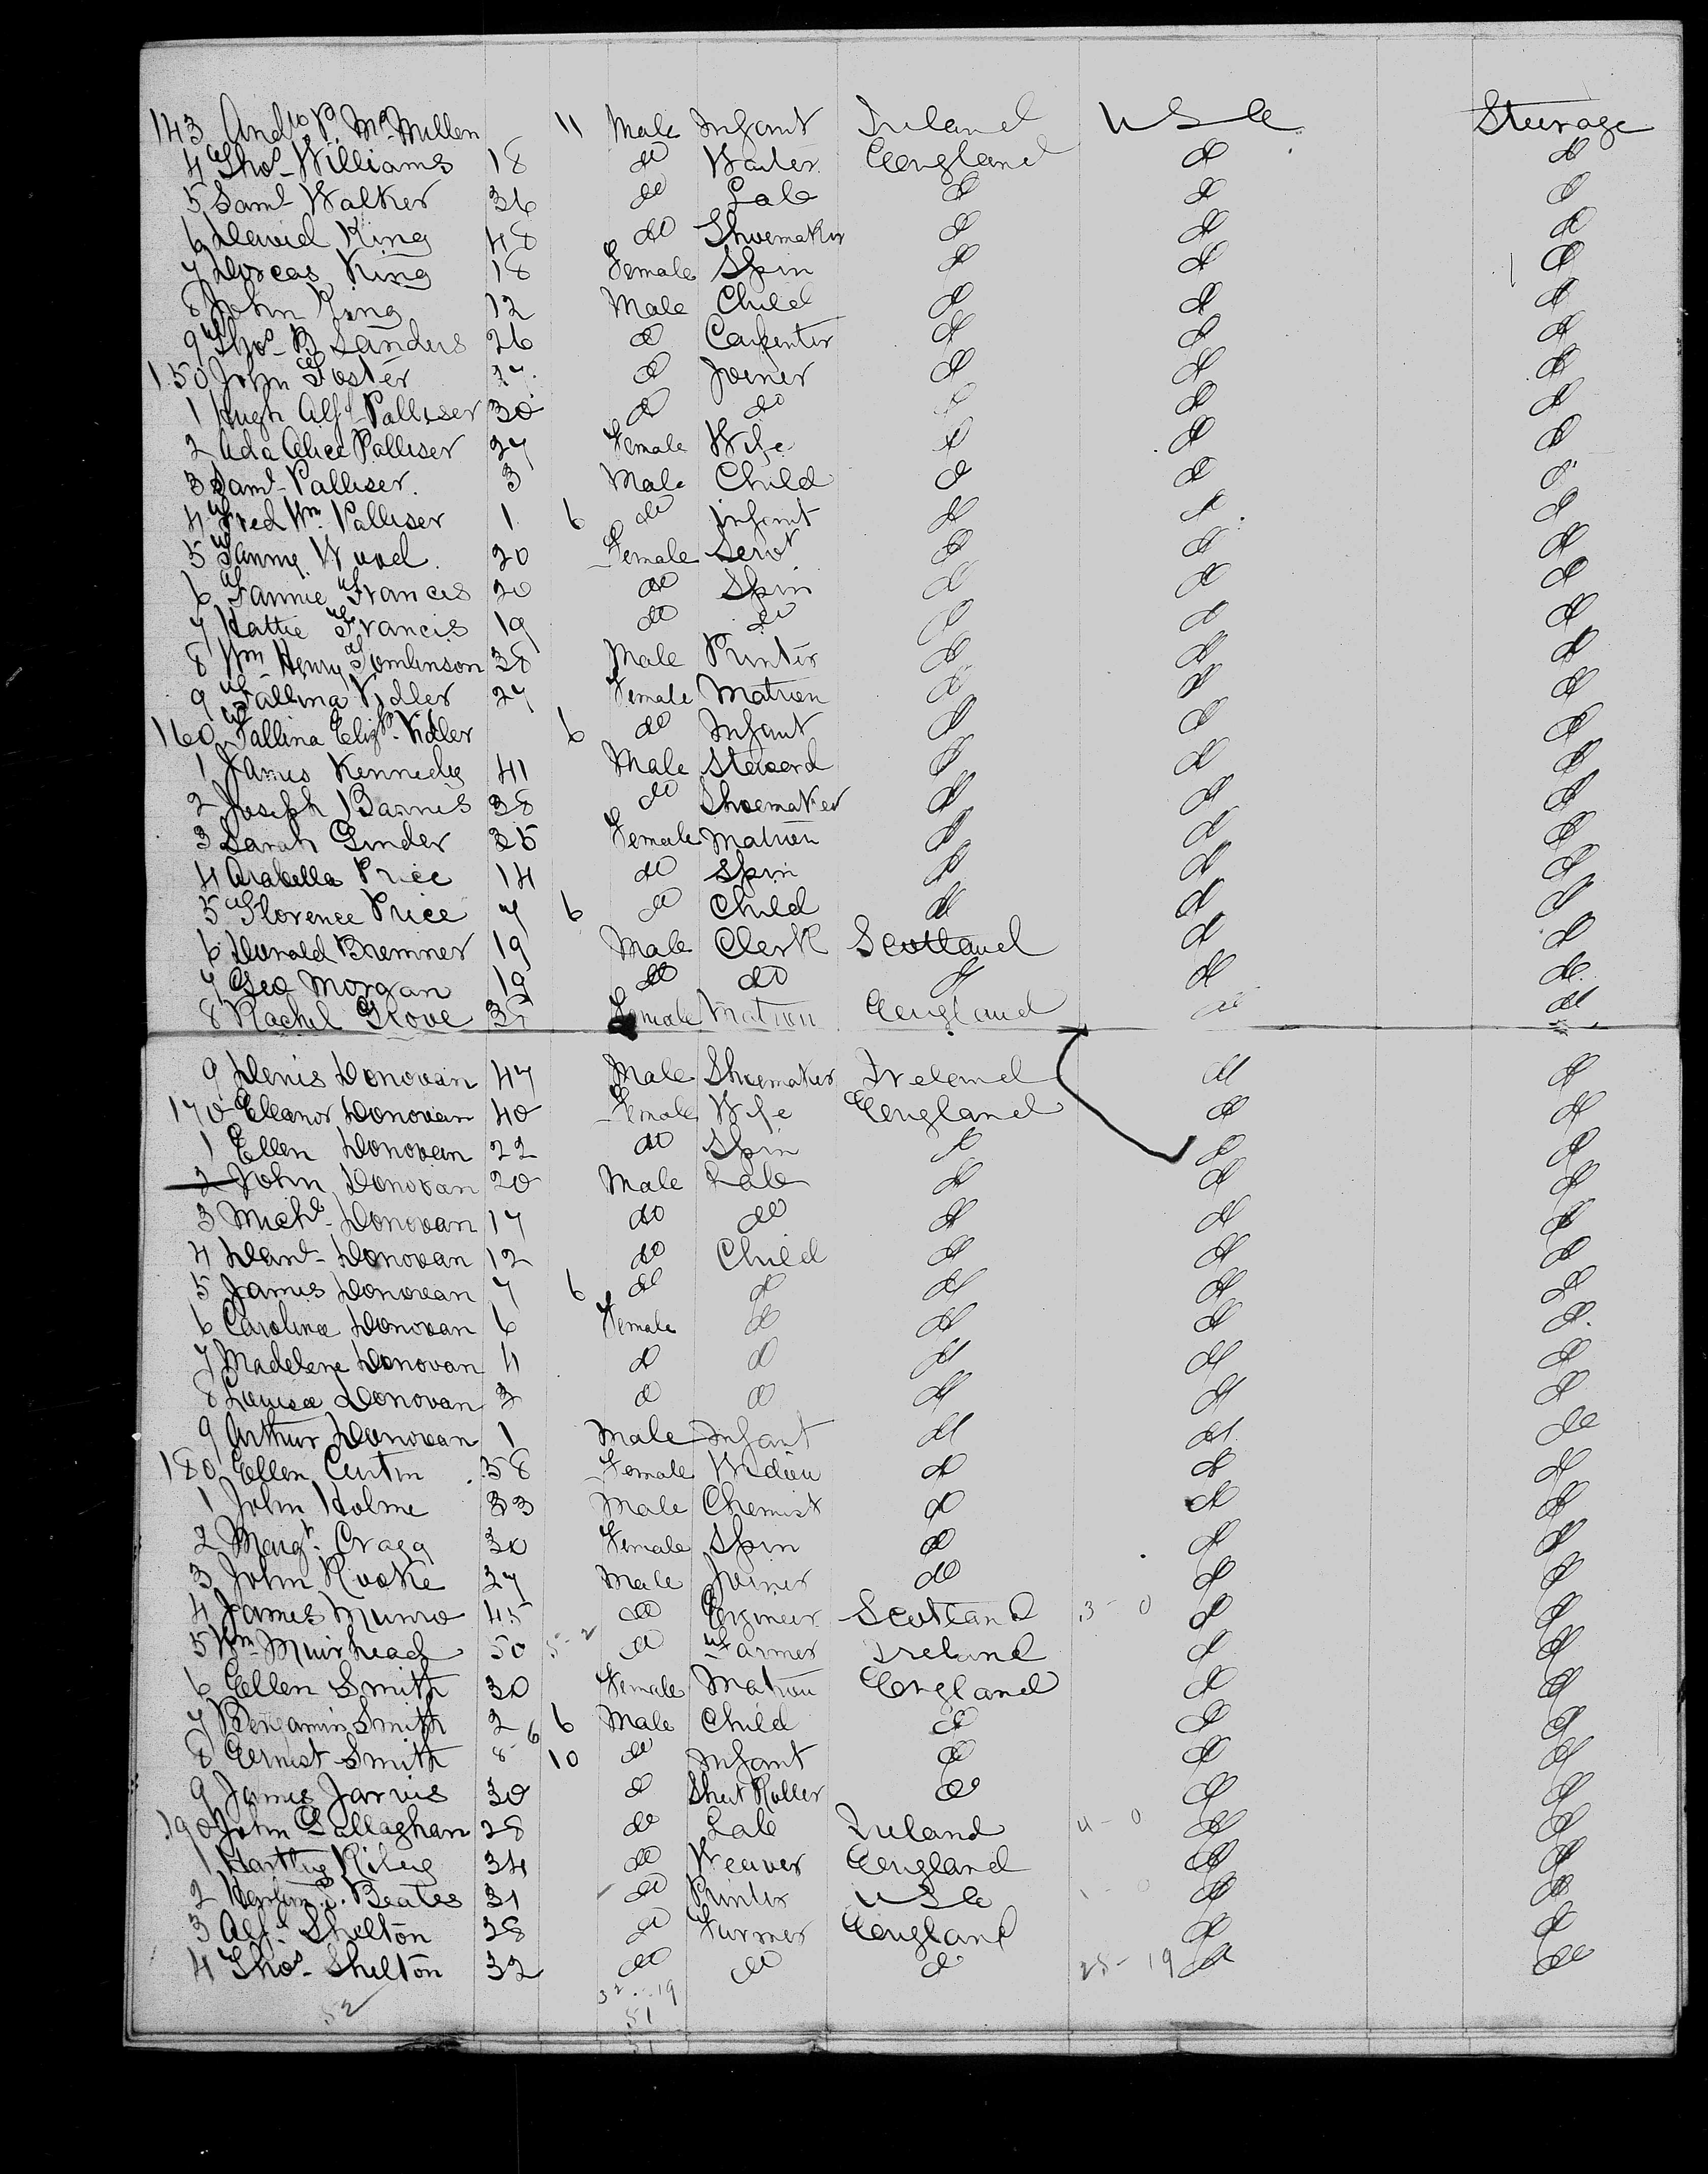 143 Andw P. McMillen 11 Male Infant Ireland U S A Steerage
4 Thos Williams 18 do Waiter England do do
5 Saml Walker 36 do Lab do do do
6 David King 48 do Shoemaker do do do
7 Dorcas King 18 Female Spin do do do
8 John King 12 Male Child do do do
9 Thos B Sanders 26 do Carpenter do do do
150 John Foster 27 do Joiner do do do
1 Hugh Alfd Palliser 30 do do do do do
2 Ada Alice Palliser 27 Female Wife do do do
3 Saml Palliser 3 Male Child do do do
4 Fred Wm Palliser 1 6 do Infant do do do
5 Fanny Wood 20 Female Servt do do do
6 Fannie Francis 20 do Spin do do do
7 Hattie Francis 19 do do do do do
8 Wm Henry Tomlinson 38 Male Printer do do do
9 Tallina Vidler 27 Female Matron do do do
160 Tallina Elizh Vidler 6 do Infant do do do
1 James Kennedy 41 Male Steward do do do
2 Joseph Barnes 38 do Shoemaker do do do
3 Sarah Ginder 35 Female Matron do do do
4 Arabella Price 14 do Spin do do do
5 Florence Price 7 6 do Child do do do
6 Donald Bremner 19 Male Clerk Scotland do do
7 Geo Morgan 19 do do do do do
8 Rachel Grove Female Matron England do do
9 Denis Donovan 47 Male Shoemaker Ireland do do
170 Eleanor Donovan 40 Female Wife England do do
1 Ellen Donovan 22 do Spin do do do
2 John Donovan 20 Male Lab do do do
3 Michl Donovan 17 do do do do do
4 Danl Donovan 12 do Child do do do
5 James Donovan 7 6 do do do do do
6 Caroline Donovan 6 Female do do do do
7 Madelene Donovan 4 do do do do do
8 Louisa Donovan 3 do do do do do
9 Arthur Donovan 1 Male Infant do do do
180 Ellen Curtin 58 Female Widow do do do
1 John Holme 33 Male Chemist do do do
2 Margt Cragg 30 Female Spin do do do
3 John Rooke 27 Male Joiner do do do
4 James Munro 45 do Engineer Scotland 3 - 0 do do
5 Wm Muirhead 50 5-2 do Farmer Ireland do do
6 Ellen Smith 30 Female Matron England do do
7 Benjamin Smith 2 6 6 Male Child do do do
8 Ernest Smith 8 10 do Infant do do do
9 James Jarvis 30 do Sheet Roller do do do
190 John Gallaghan 28 do Lab Ireland 4 - 0 do do
1 Hartley Riley 34 do Weaver England do do
2 Beates 31 do Printer U S A 1 - 0 do do
3 Alfd Shelton 28 do Farmer England do do
4 Thos Shelton 32 do do do 25 - 19 do do
52 32 - 19
51